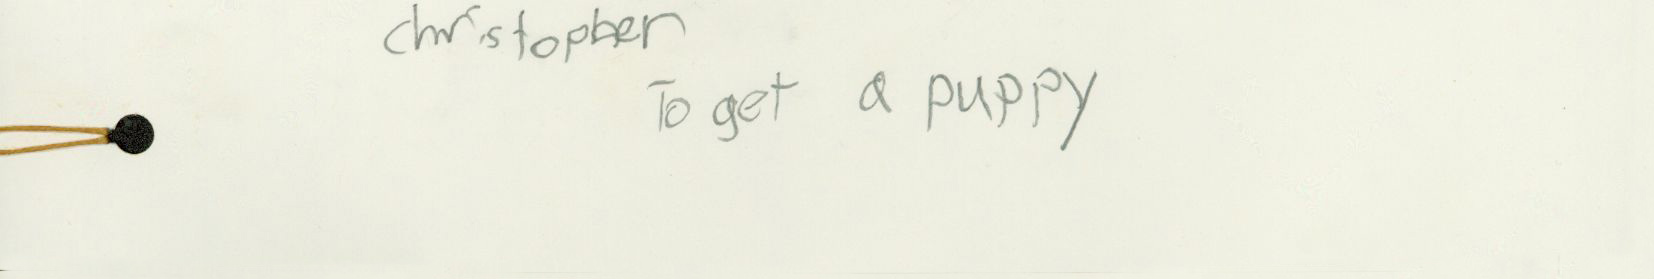 christopher
To get a puppy